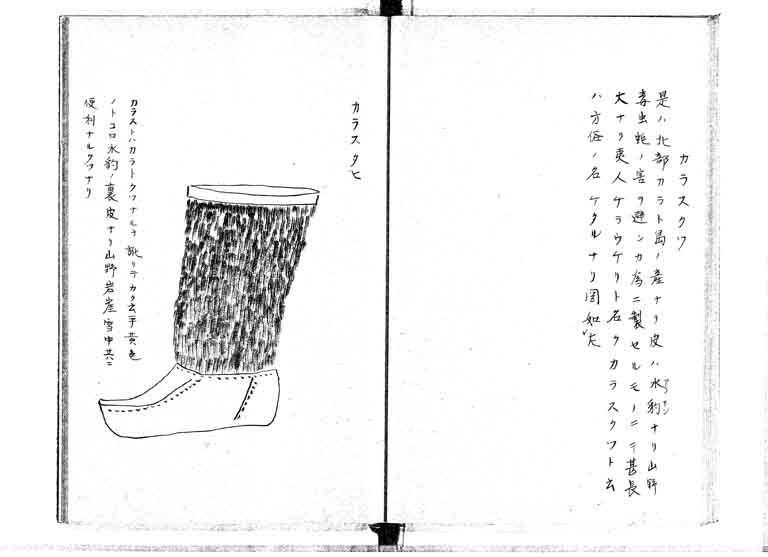 カラスクツ
是ハ北部カラト島ノ産ナリ皮ハ水豹ナリ山野
毒虫蛇ノ害ヲ避ンカ為ニ製セルモノニテ甚長
大ナリ夷人ケラウケリト名クカラスクツト云
ハ方俗ノ名ケタルナリ図如左
カラスタヒ
カラストハカラトクツナルヲ訛リテカク云手黄色
ノトコロ水豹ノ裏皮ナリ山野岩崖雪中共ニ
便利ナルクツナリ